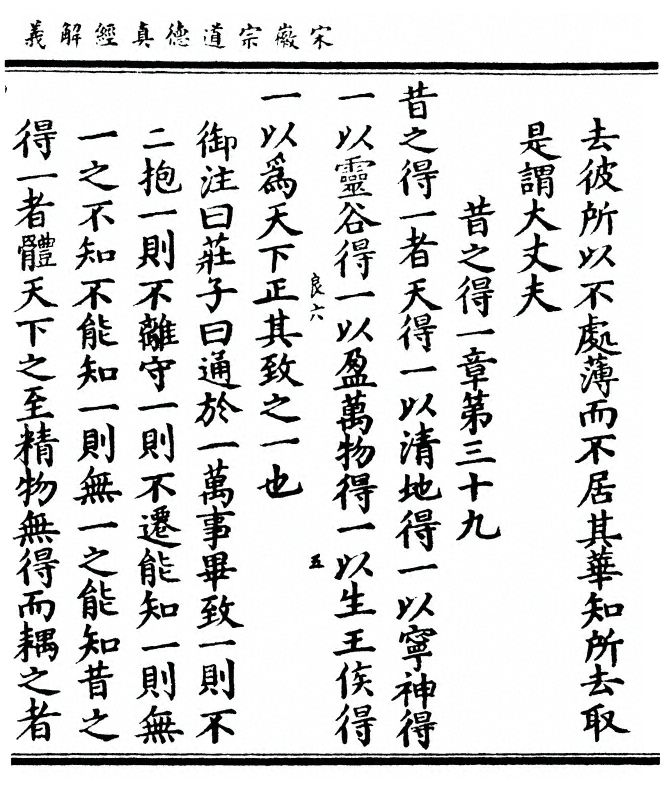 宋徽宗道德真經解義
去彼所以不處薄而不居其華知所去取
是謂大丈夫
昔之得一章第三十九
昔之得一者天得一以清地得一以寧神得
一以靈谷得一以盈萬物得一以生王侯得
良六
五
一以為天下正其致之一也
御注曰莊子曰通於一萬事畢致一則不
二抱一則不離守一則不遷能知一則無
一之不知不能知一則無一之能知昔之
得一者體天下之至精物無得而耦之者